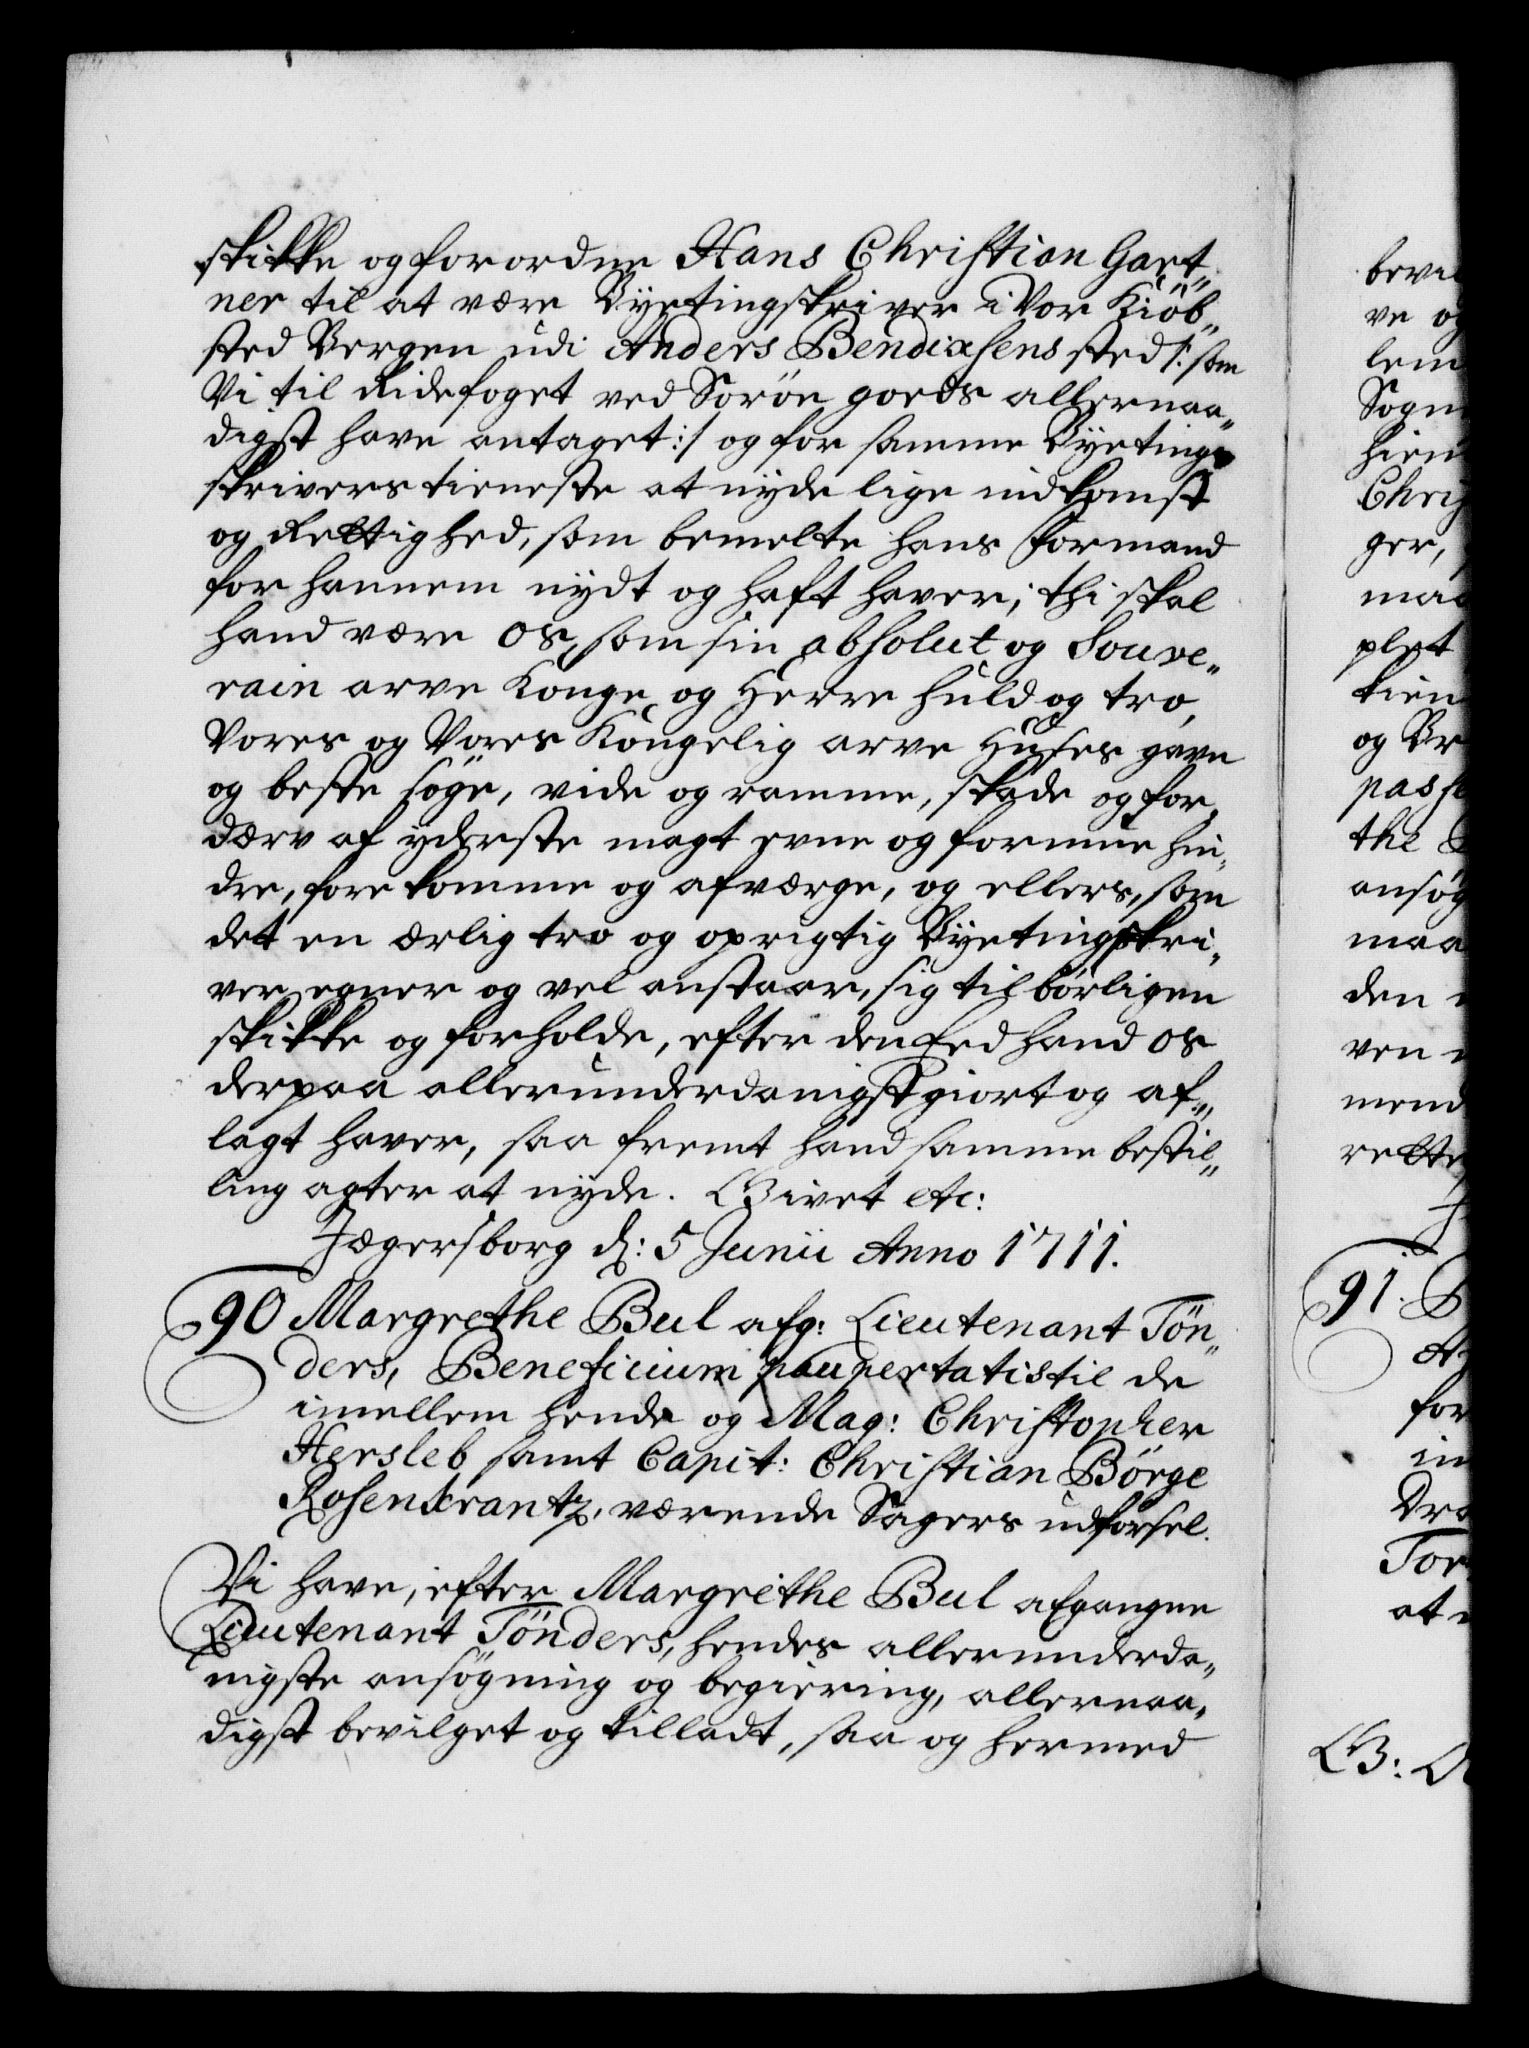 skikke og forordne Hans Christian Gart„
ner til at være Byetingskriver i Vor Kiöb„
sted Bergen udi Anders Bendixsens sted /: som
Vi til Ridefoget ved Soröe goeds allernaa„
digst have antaget :/ og for samme Byetings
skrivers tieneste at nyde lige indkomst
og Rettighed, som bemelte hans Formand
for hannem nydt og haft haver; thi skal
hand være os, som sin absolut og Souve„
rain arve Konge og Herre huld og tro,
Vores og Vores Kongelig arve Huses gavn
og beste söge, vide og ramme, skade og for„
dærv af yderste magt evne og formue hin„
dre, forekomme og afværge, og ellers, som
det en ærlig tro og oprigtig Byetingskri„
ver egner og vel anstaar, sig tilbörligen
skikke og forholde, efter den Eed hand os
derpaa allerunderdanigst giort og af„
lagt haver, saa fremt hand samme bestil„
ling agter at nyde. Givet etc:
Jægersborg d: 5 Junii Anno 1711.
90 Margrethe Bul afg: Lieutenant Tön„
ders, Beneficium paupertatis til de
imellem hende og Mag: Christopher
Hersleb samt Capit: Christian Börge
Rosenkrantz, værende Sagers udförsel.
Vi have, efter Margrethe Bul afgangne
Lieutenant Tönders, hendes allerunderda„
nigste ansögning og begiering, allernaa„
digst bevilget og tilladt, saa og hermed
ve og
lem
ger,
plet
tien
og
the
ansög
maa
den
ven
mend
91.
for
at